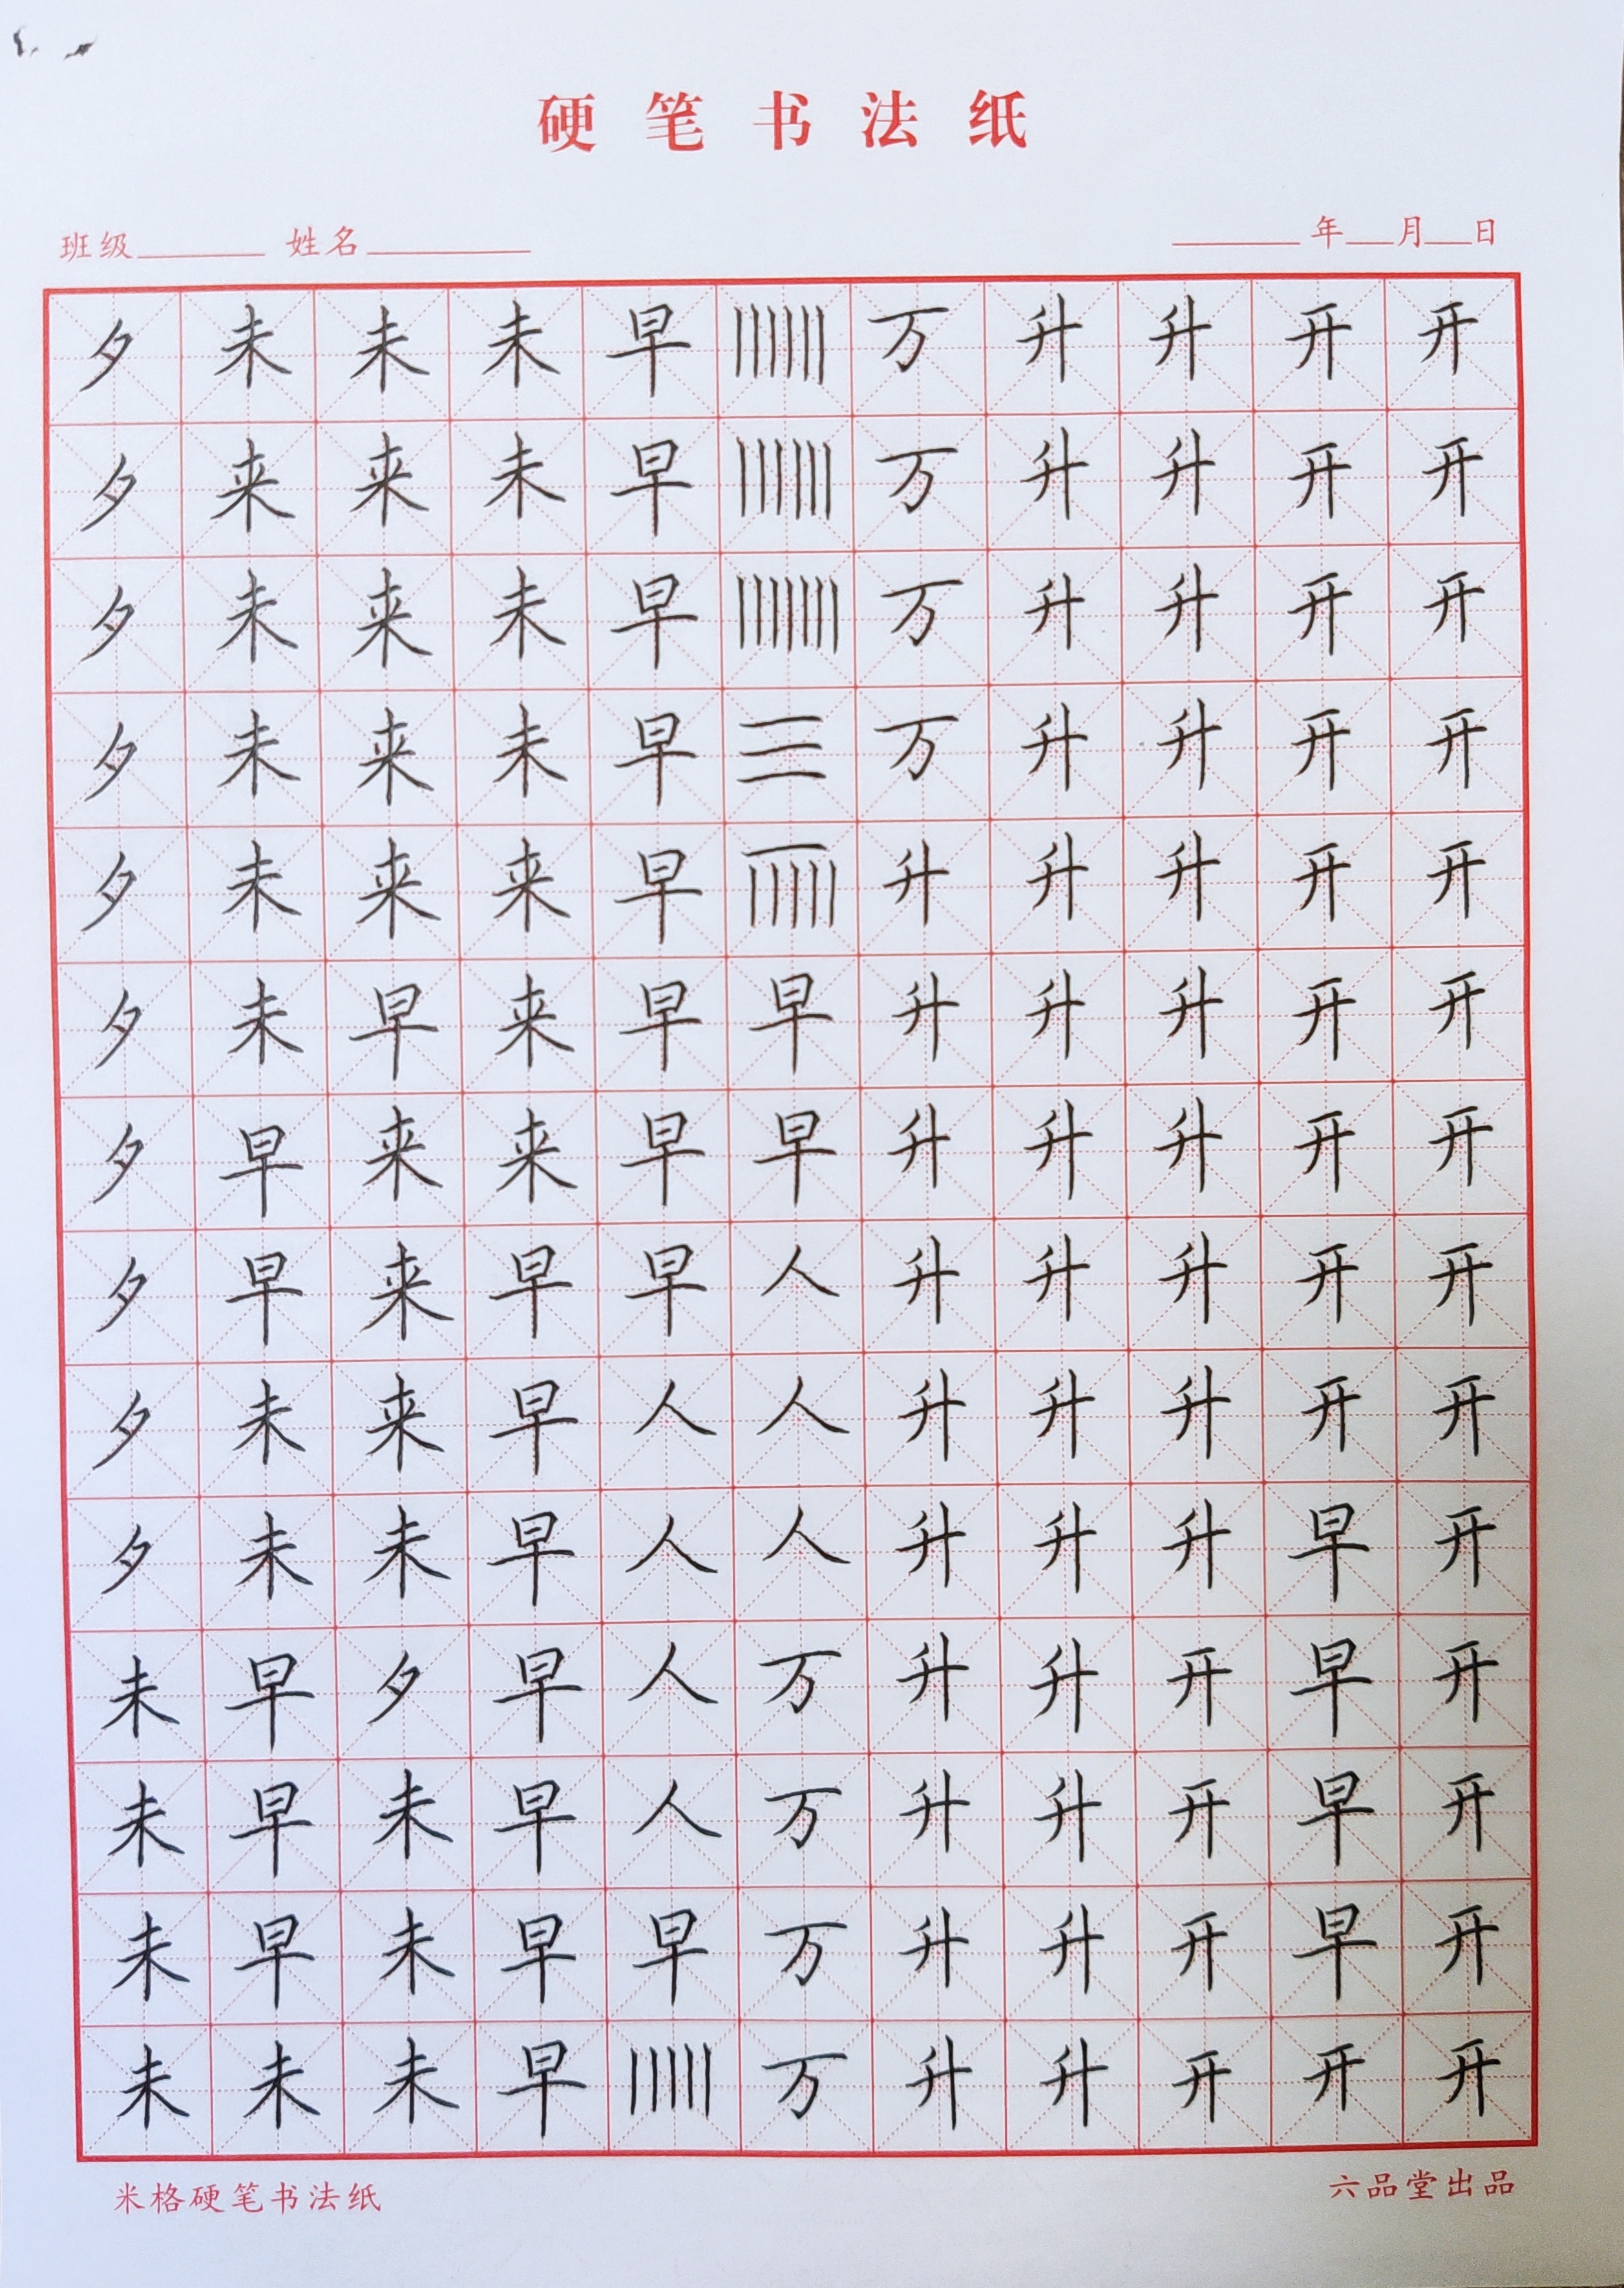 硬笔书法纸
班级 姓名 年 月 日
夕 未 未 未 早 万 升 升 开 开
夕 来 来 未 早 万 升 升 开 开
夕 未 来 未 早 万 升 升 开 开
夕 未 来 未 早 三 万 升 升 开 开
夕 未 来 来 早 升 升 升 开 开
夕 未 早 来 早 早 升 升 升 开 开
夕 早 来 来 早 早 升 升 升 开 开
夕 早 来 早 早 人 升 升 升 开 开
夕 未 来 早 人 人 升 升 升 开 开
夕 未 未 早 人 人 升 升 升 早 开
未 早 夕 早 人 万 升 升 开 早 开
未 早 未 早 人 万 升 升 开 早 开
未 早 未 早 早 万 升 升 开 早 开
未 未 未 早 万 升 升 开 开 开
米格硬笔书法纸 六品堂出品